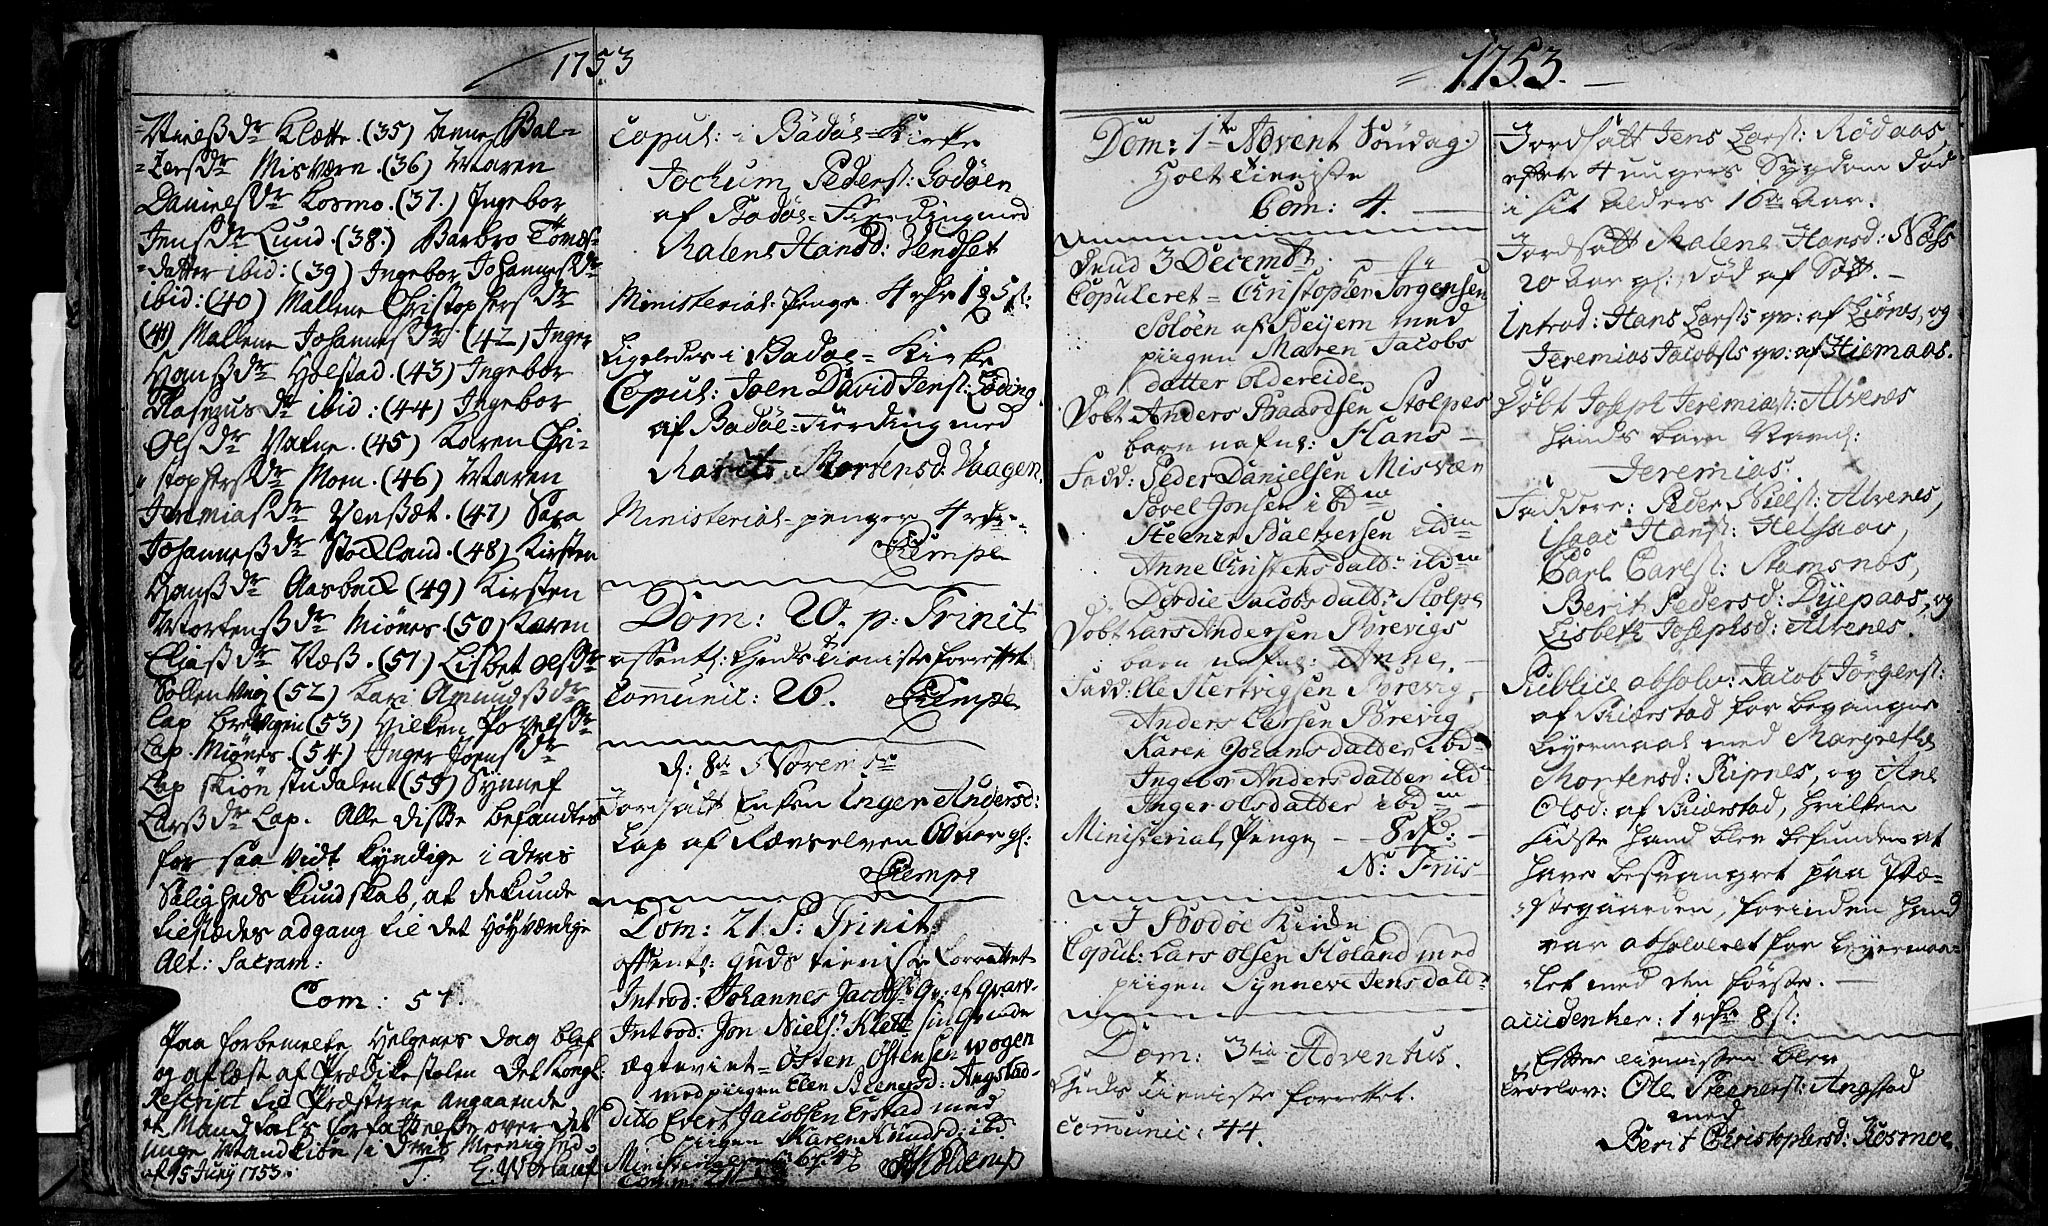 1753
Nielsdr Klætte. (35) Anne Bal-
=tersdr Misværn. (36) Maren
Danielsdr Kosmo. (37.) Ingebor
Jensdr Lund. (38.) Barbro Tomæs-
=datter ibid: (39) Ingebor Johannesdr
ibid: (40) Mallene Christophersdr
(41) Mallene Johannesdr (42) Inger
Hansdr Holstad. (43) Ingebor
Rasmusdr ibid: (44) Ingebor
Olsdr Vatne. (45) Karen Chri-
stophersdr Moen. (46) Maren
Jeremiasdr Vensæt. (47) Sara
Johannesdr Stockland. (48) Kirsten
Hansdr Aasback (49) Kirsten
Mortensdr Miönes. (50) Karen
Eliasdr Næss. (51) Lisbet Olsdr
Sollenvig (52) Kari Amundsdr
Lap (53) Povelsdr
Lap. Miönes. (54) Inger Joensdr
Lap skiönstudalen (55) Synnef
Larsdr Lap. Alle disse befandtes
for saa vidt kyndige i deris
Saligheds kundskab, at de kunde
tilstædes adgang til det Høyværdige
Alt: Sacram:
Com: 57.
Paa forbemelte Helgenes dag blef
og aflæst af Prædikestolen Det Kongl
Rescript til Præsterne angaaende
et Mandtals forfattelse over det
unge Mandkiön i
af 15 Juny 1753. T. E. Werlauf
Copul: i Bodöe Kirke
Jochum Peders: Godöen
af Bodöe-Fierding med
Malene Hansd: Vendset
Ministerial-Penge 4
Ligeledes i Bodöe-Kirke
Copul: Joen David Jens: Löding
af Bodöe-Fierding med
Marite Mortensd: Vaagen.
Ministerial-penger 4
Kempe
Dom: 20. p: Trinit
offentl: Guds tieniste forrettet
Communic: 26. Kempe
d: 8de Novembr
Jordsatt Enken Inger Andersd:
Lap af 60 aar gl:
Kempe
Dom: 21. P: Trinit:
offentl: Guds tieniste forrettet
Introd: Johannes Jacobs qv: af
Introd: Jon Niels: Klette sin qvinde
Ægteviet= Östen Östensen Wogen
med piigen Elen Angstad
Ditto Evert Jacobsen Erstad med
piigen Karen Knudsd: ibd.
Ministerial
1753.
Dom: 1te Advent Söndag.
Holt tieniste
Com: 4.
Dend 3 Decembr
Copuleret= Christopher Jörgensen
Soløen af Beijern med
piigen Maren Jacobs
datter oldereide
Döbt Anders Baardsen Stolpes
barn nafnl: Hans
Fadd: Peder Danielsen Misvæn
Povel Jonsen ibdm
Steener Baltzersen ibdm
Anne Christensdatt: ibdm
Dordie Jacobsdattr Stolpe
Döbt Lars Andersen Børevigs
barn nafnl: Anne,
Fadd: Ole Hertvigsen Børevig,
Anders Larsen Børevig
Karen Johansdatter ibd
Ingebor Andersdatter ibd
Inger olsdatter ibdm
Ministerial, Penge
N: Friis
I Bodöe Kirke
Copul: Lars Olsen Höland med
piigen Synneve Jensdattr
Dom: 3tia Adventus.
Guds tieniste forrettet.
Communic: 44.
Jordsatt Jens Lars: Rödaas
efter 4 ugers Sygdom død
i sit Alders 16de Aar.
Jordsatt Malene Hansd: Næss
20 Aar gl: død af Sott.
Introd: Hans Larss qv: af Liönes, og
Jeremias Jacobss qv: af Hiemaas.
Döbt Joseph Jeremias: Alvenes
hands barn Navnl:
Jeremias.
Faddere: Peder Niels: Alvenes,
Isaac Hans:
Carl Carls: Stamsnes,
Berit Pedersd: og
Lisbeth Josephsd: Alvenes.
Publice absolv: Jacob Jörgens:
af Bierstad for begangne
Leyermaal med Margrethe
Mortensd: Ripnes, og Ane
Olsd: af Bierstad, hvilken
sidste hand blev befunden at
have besvangret paa Præ-
stegaarden, forinden hand
var absolveret for Leyermaa-
let med den første.
1 8
Efter tienisten blev
trolov: Ole Steeners: Angstad
med
Berit Christophersd: Kosmoe